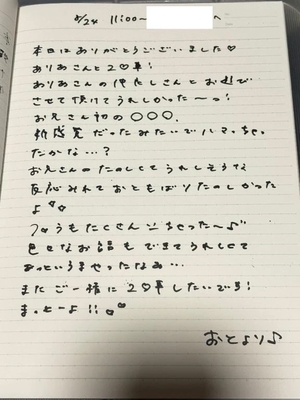 8/24 11:00〜 へ
本日はありがとうございました♡
ありあさんと2○車!
ありあさんの他たしさんとお逢で
させて頂けてうれしかった〜っ!
お兄さん初の○○○.
新感覚だったみたいでハマっちゃっ
たかな…?
お兄さんのたのしくてうれしそうな
反応みれておともばりたのしかった
よ
フロうもたくさんこちゃった〜♪
色々なお話もできてうれしくて
あっというまやったなあ…
またご一緒に2○車したいです!
まっとーよ!!
おとより♪